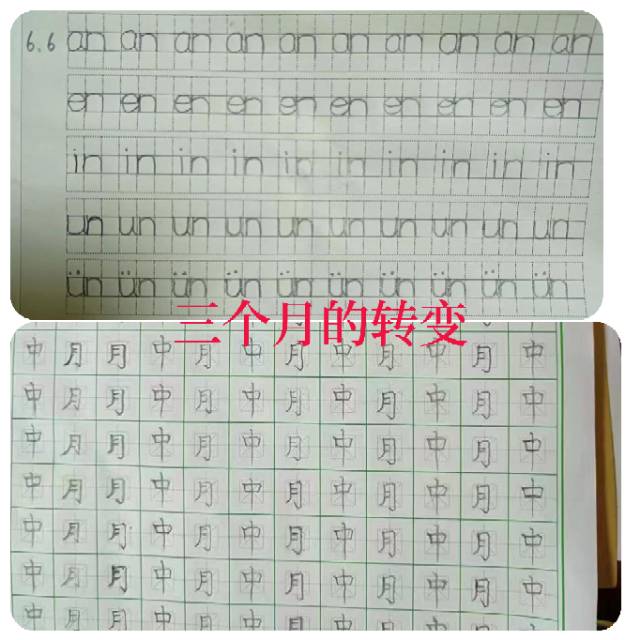 6.6 an an an an an an an an an an
en en en en en en en en en en
in in in in in in in in in in
un un un un un un un un un un
ün ün ün ün ün ün ün ün ün ün
三个月的转变
中 月 月 中 月 中 月 中 月 中 月 中
中 月 月 中 月 中 月 中 月 中 月 中
中 月 月 中 月 中 月 中 月 中 月 中
中 月 月 中 月 中 月 中 月 中 月 中
中 月 月 中 月 中 月 中 月 中 月 中
中 月 月 中 月 中 月 中 月 中 月 中
中 月 月 中 月 中 月 中 月 中 月 中